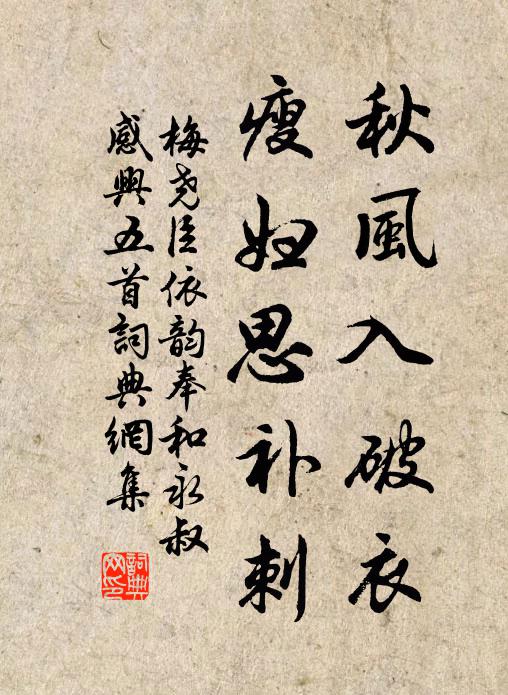 秋風入破衣
瘦妇思补刺
梅尧臣依韵奉和永叔
感興五首詞典網集
詞典
网印